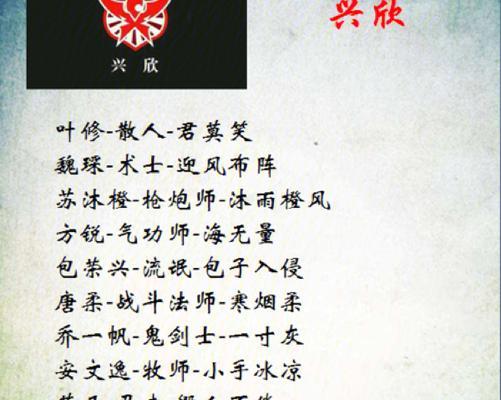 兴欣
兴 欣
叶修-散人-君莫笑
魏琛-术士-迎风布阵
苏沐橙-枪炮师-沐雨橙风
方锐-气功师-海无量
包荣兴-流氓-包子入侵
唐柔-战斗法师-寒烟柔
乔一帆-鬼剑士-一寸灰
安文逸-牧师-小手冰凉